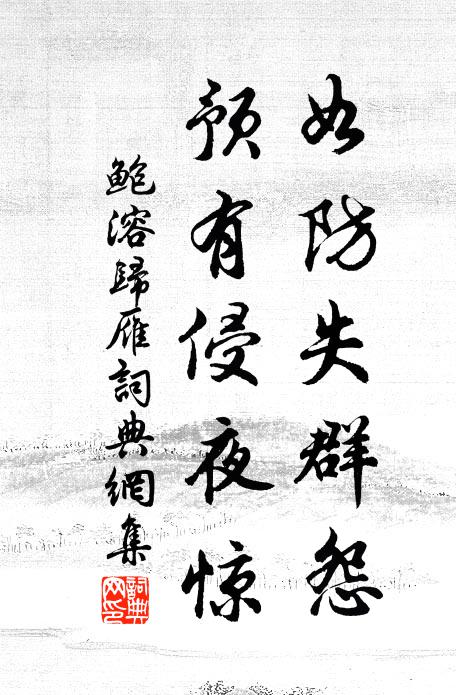 如防失群怨
预有侵夜惊
鲍溶歸雁詞典網集
詞典